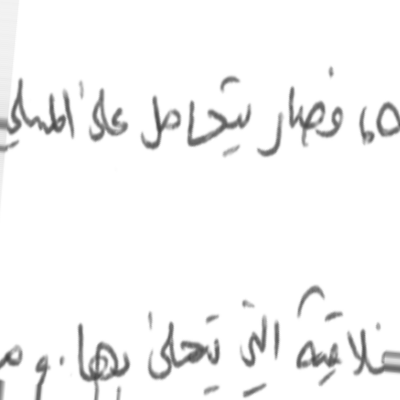 فصار يتحامل على المسلمي
خلاقية التي يتحلى بها . و م